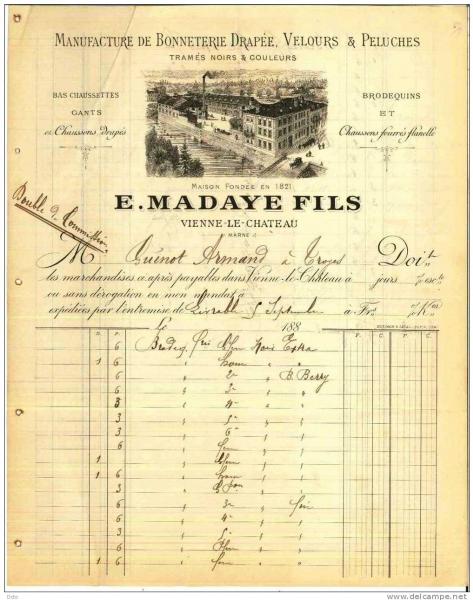 MANUFACTURE DE BONNETERIE DRAPÉE, VELOURS & PELUCHES
TRAMÉS NOIRS & COULEURS
BAS CHAUSSETTES
GANTS
et Chaussons drapés
BRODEQUINS
ET
Chaussons fourrés flanelle
MAISON FONDÉE EN 1821
E. MADAYE FILS
VIENNE-LE-CHATEAU
MARNE
Double de Commission
M Guénot Armand à Troyes Doit
les marchandises ci-après payables dans Vienne-le-Château à jours % escte
ou sans dérogation en mon mandat à
expédiées par l'entremise de Livrable 5 Septembre à Frs % Kos
Le 188
D. P. F. C. F. C.
6 Brodeq. fin Noir Extra
1 6 hom " "
6 " 2e " B. Berry
6 " 3e " "
3 " 4e " "
3 " 5e " "
3 " 6e " "
6
1
1 6 hom
3
6 " 3e " fin
6 " 4e "
6 " 5e "
6
1 6
Ddo
delcampe.net